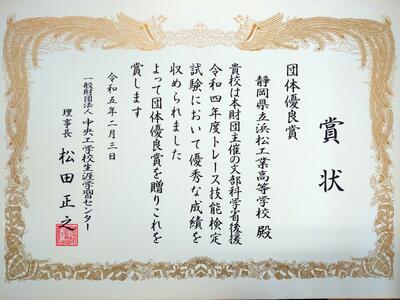 賞状
団体優良賞
静岡県立浜松工業高等学校 殿
貴校は本財団主催の文部科学省後援
令和四年度トレース技能検定
試験において優秀な成績を
収められました
よって団体優良賞を贈りこれを
賞します
令和五年二月三日
一般財団法人 中央工学校生涯学習センター
理事長 松田正之